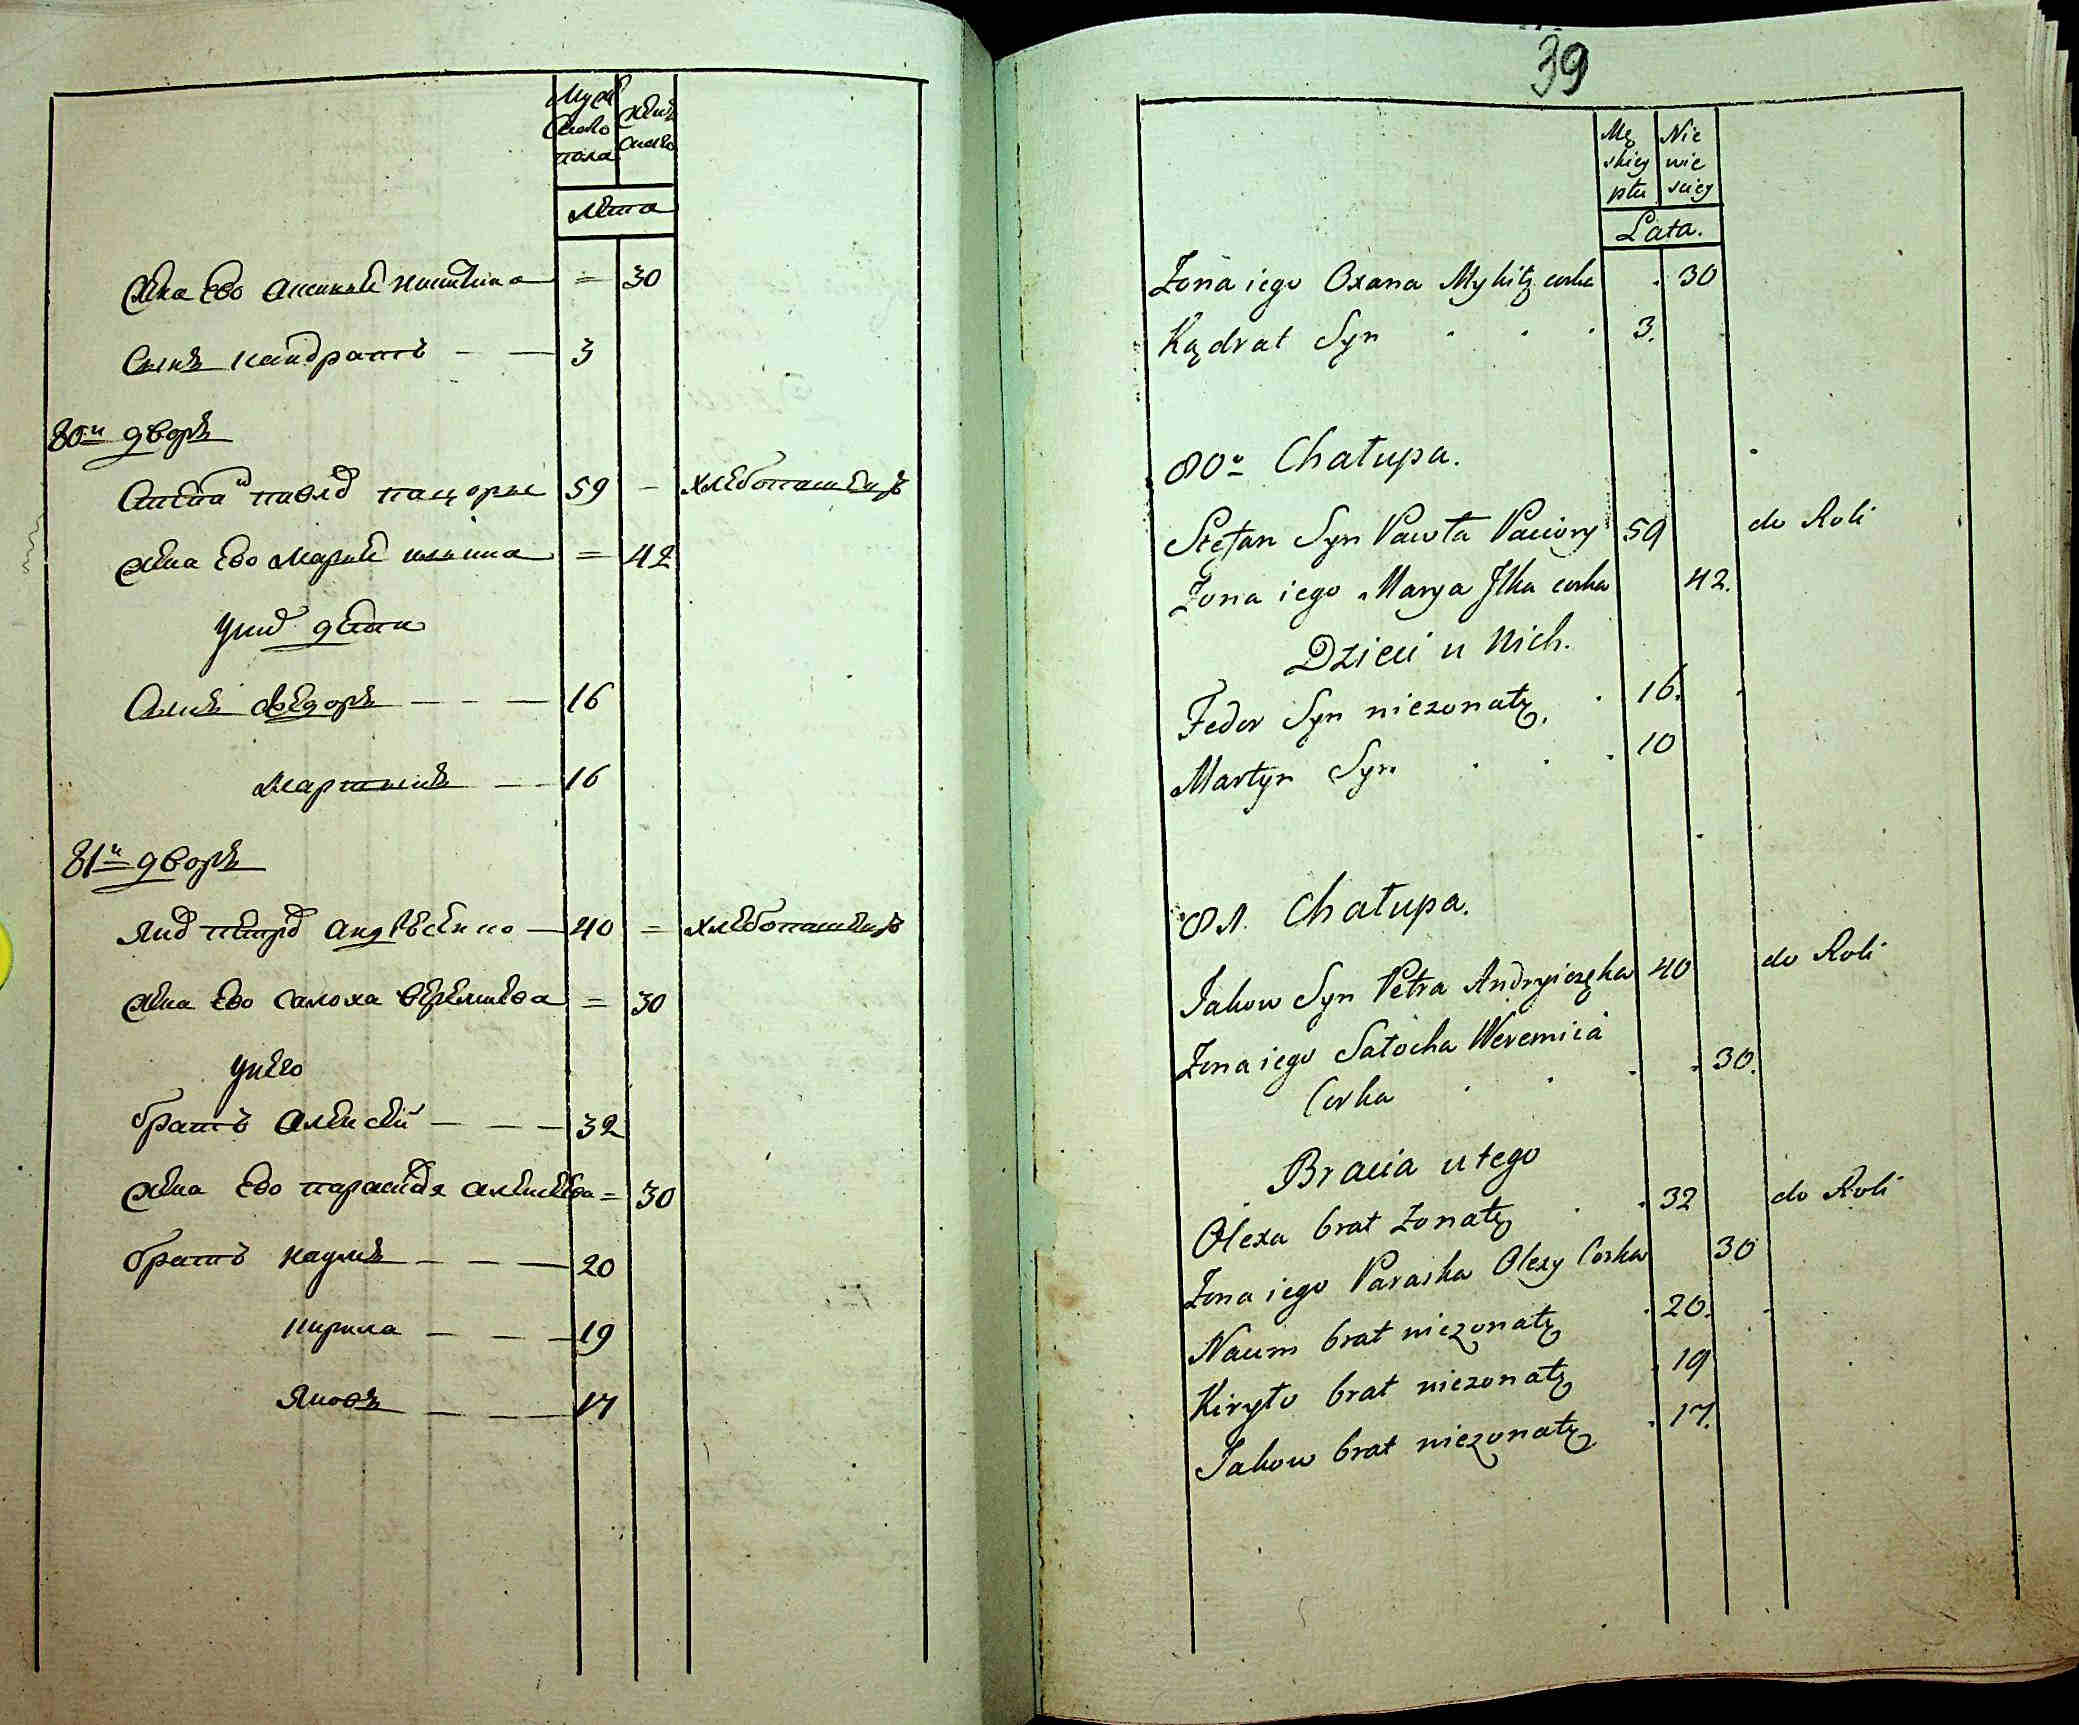 Муж
ского
пола
женс
каго
Лета
жена ево аксинья никитина = 30
Сынъ кандратъ — — 3
80й дворъ
Степанъ павловъ пацоры 59 — хлебопашецъ
жена ево Марья ильина = 42
у них дети
Сынъ Федоръ — — — 16
Мартынъ — — 16
81й дворъ
Яковъ петровъ андреенко — 40 = хлебопашецъ
жена ево Салоха веремиева = 30
у него
братъ Алексей — — — 32
жена ево параска алексеева = 30
братъ наумъ — — — 20
кирила — — — 19
Яковъ — — — 17
39
Mę
skiey
płci
Nie
wie
sciey
Lata.
Zona iego Oxana Mykitę corka . 30
Kądrat Syn . . . 3.
80a Chałupa.
Stefan Syn Pawła Paciory 59 do Roli
Zona iego Marya Ilka corka 42.
Dzieci u Nich.
Fedor Syn niezonaty. . 16.
Martyn Syn . . . 10
81. Chałupa.
Jakow Syn Petra Andryiczęka 40 do Roli
Zona iego Sałocha Weremiia
Corka . . . . 30.
Bracia u tego
Olexa brat zonaty . . 32 do Roli
Zona iego Paraska Olexy Corka 30
Naum brat niezonaty . 20.
Kiryło brat niezonaty . 19
Jakow brat niezonaty . 17.